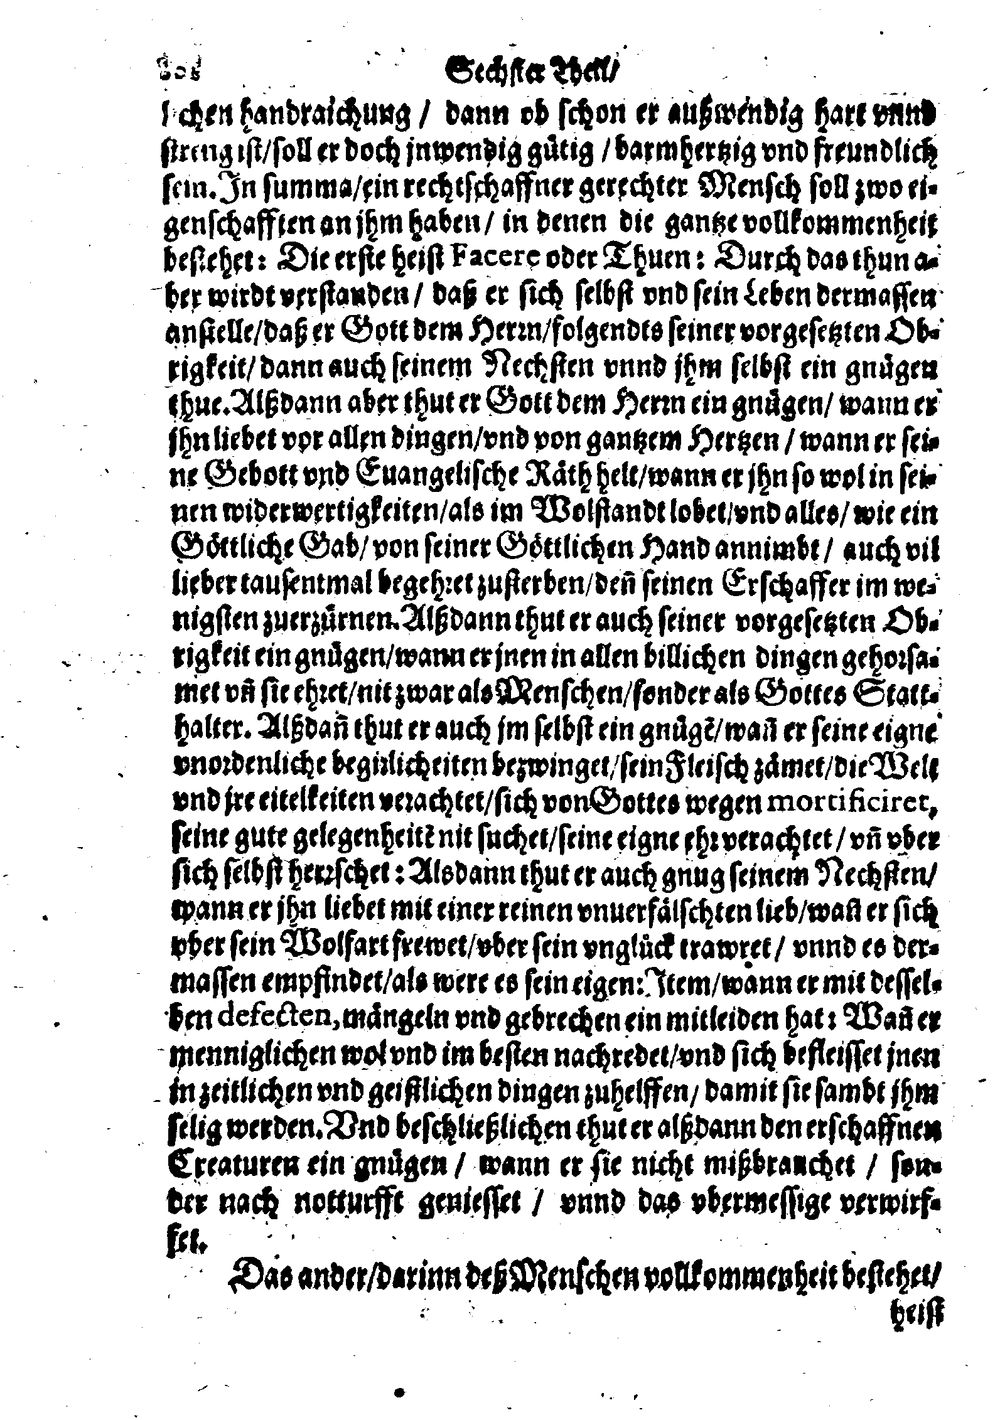 Sechster Theil/
chen handraichung / dann ob schon er außwendig hart vnnd
streng ist/soll er doch jnwendig gütig /barmhertzig vnd freundlich
sein. In summa/ein rechtschaffner gerechter Mensch soll zwo ei-
genschafften an jhm haben/ in denen die gantze vollkommenheit
bestehet: Die erste heist Facere oder Thuen: Durch das thun a-
ber wirdt verstanden/ daß er sich selbst vnd sein Leben dermassen
anstelle/daß er Gott dem Herrn/folgendts seiner vorgesetzten Ob-
rigkeit/dann auch seinem Nechsten vnnd jhm selbst ein gnügen
thue. Alßdann aber thut er Gott dem Herrn ein gnügen/ wann er
jhn liebet vor allen dingen/vnd von gantzem Hertzen / wann er sei-
ne Gebott vnd Euangelische Räth helt/wann er jhn so wol in sei-
nen widerwertigkeiten/als im Wolstandt lobet/vnd alles/ wie ein
Göttliche Gab/ von seiner Göttlichen Hand annimbt/ auch vil
lieber tausentmal begehret zusterben/deñ seinen Erschaffer im we-
nigsten zuerzürnen. Alßdann thut er auch seiner vorgesetzten Ob-
rigkeit ein gnügen/wann er jnen in allen billichen dingen gehorsa-
met vñ sie ehret/nit zwar als Menschen/sonder als Gottes Statt-
halter. Alßdañ thut er auch jm selbst ein gnügẽ/wañ er seine eigne
vnordenliche begirlicheiten bezwinget/sein Fleisch zämet/die Welt
vnd jre eitelkeiten verachtet/sich von Gottes wegen mortificiret,
seine gute gelegenheitẽ nit suchet/seine eigne ehr verachtet/ vñ vber
sich selbst herrschet: Alsdann thut er auch gnug seinem Nechsten/
wann er jhn liebet mit einer reinen vnuerfälschten lieb/wañ er sich
vber sein Wolfart frewet/vber sein vnglück trawret/ vnnd es der-
massen empfindet/als were es sein eigen: Item/wann er mit dessel-
ben defecten, mängeln vnd gebrechen ein mitleiden hat: Wañ er
menniglichen wol vnd im besten nachredet/vnd sich befleisset jnen
in zeitlichen vnd geistlichen dingen zuhelffen/ damit sie sambt jhm
selig werden. Vnd beschließlichen thut er alßdann den erschaffnen
Creaturen ein gnügen / wann er sie nicht mißbrauchet / son-
der nach notturfft geniesset / vnnd das vbermessige verwirf-
fet.
Das ander/darinn deß Menschen vollkommenheit bestehet/
heist